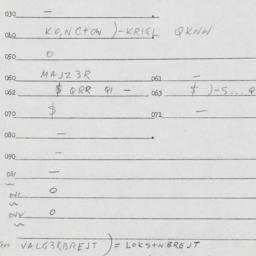 030 —
040 KO,NC+ON )-KRIGL QKNW
050 O
060 MAJZ3R 061 —
062 $ QRR QI — 063 $ )-S...Q
070 $ 071 —
080 —
090 —
091 —
O
O
VALG3RBREJT )= LOKS+NBREJT